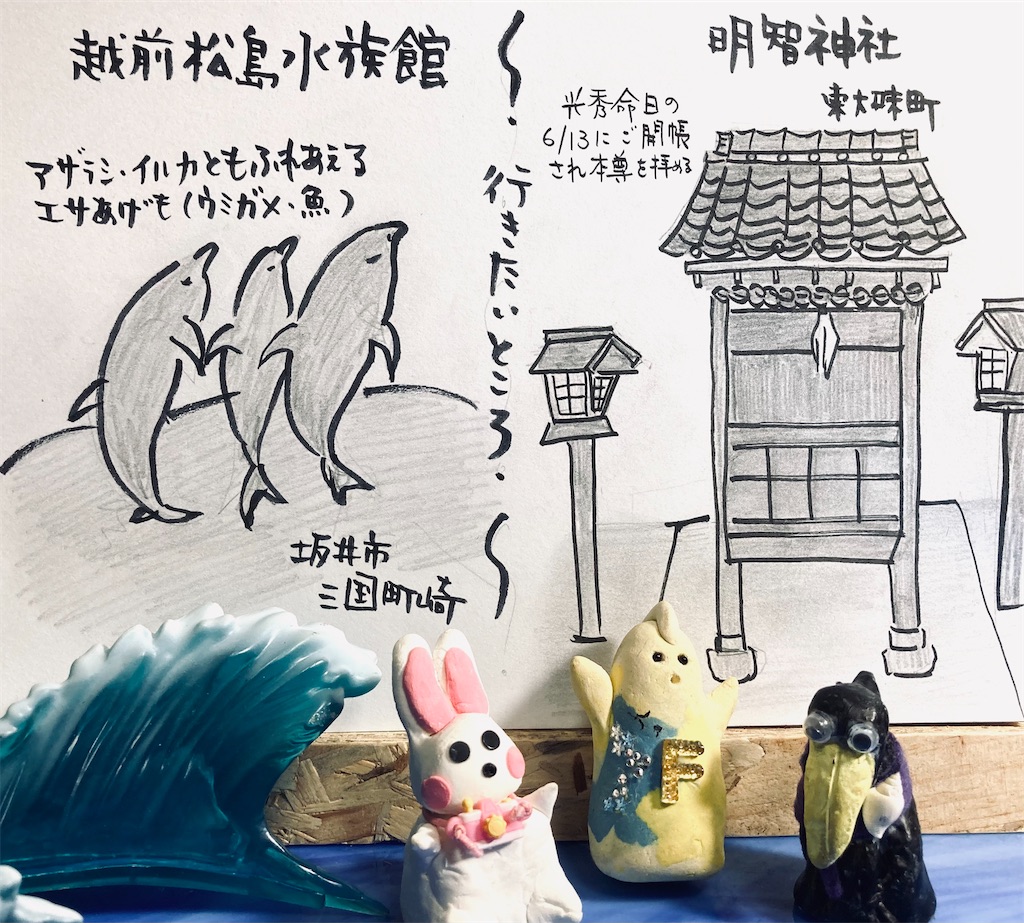 越前松島水族館
アザラシ・イルカともふれあえる
エサあげも(ウミガメ・魚)
坂井市
三国町崎
〜・行きたいところ・〜
明智神社
東大味町
光秀命日の
6/13にご開帳
され本尊を拝める
F